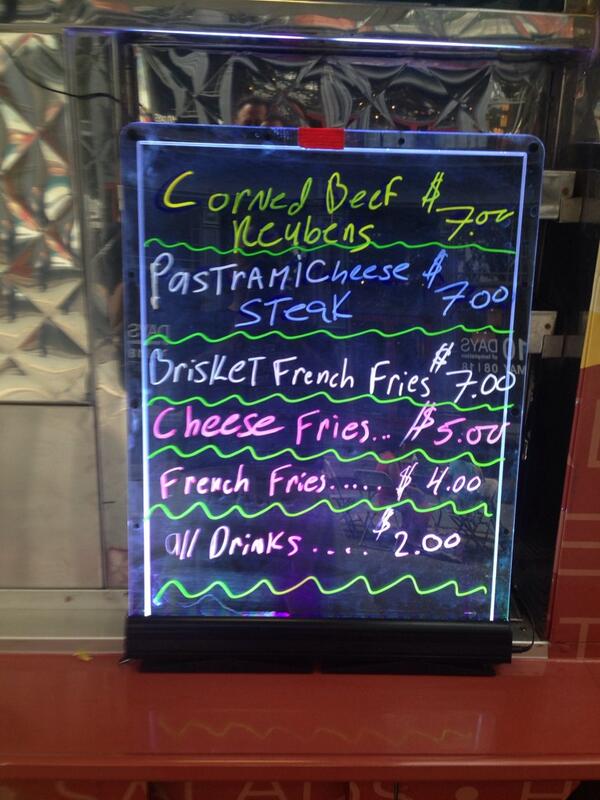 Corned Beef $
7.00
Reubens
PasTrAMi Cheese $
Steak 7.00
Brisket French Fries $7.00
Cheese Fries... $5.00
French Fries..... $4.00
all Drinks.... $2.00
10 DAYS
SALADS